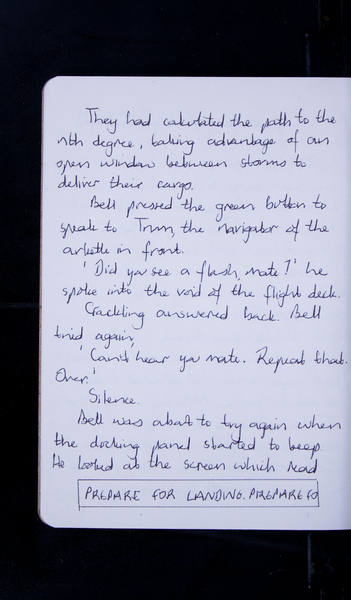 They had calculated the path to the
nth degree, taking advantage of an
open window between storms to
deliver their cargo.
Bell pressed the green button to
speak to Trum, the navigator of the
in front.
'Did you see a flash, mate?' he
spoke into the void of the flight deck.
Crackling answered back. Bell
tried again,
'Can't hear you mate. Repeat that.
Over.'
Silence.
Bell was about to try again when
the docking panel started to beep.
He looked at the screen which read
PREPARE FOR LANDING. PREPARE FO